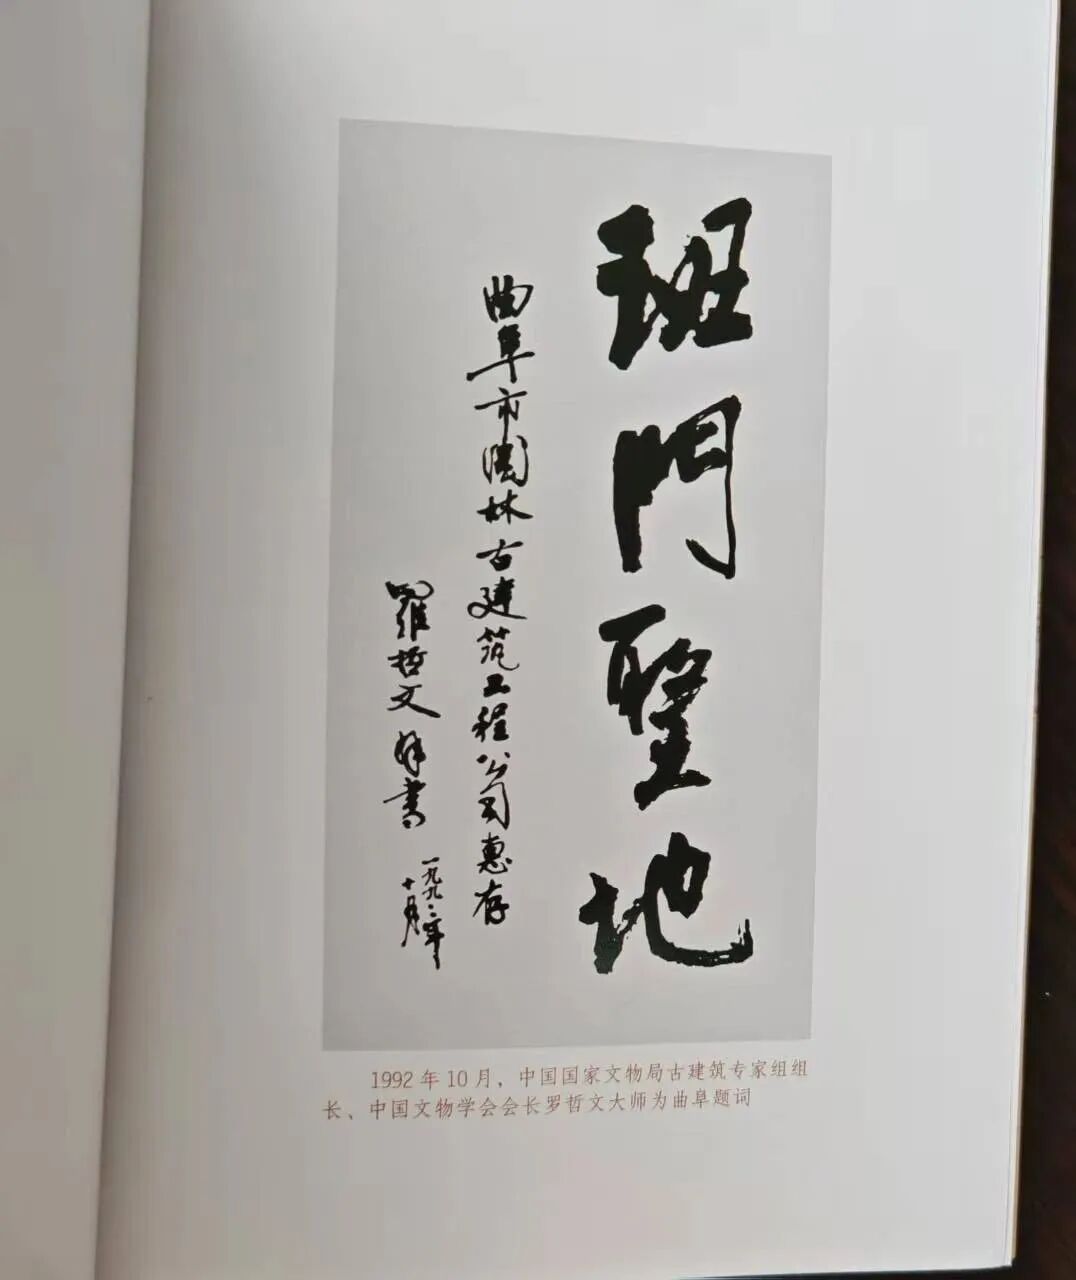 班門聖地
曲阜市園林古建筑工程公司惠存
羅哲文 敬書
一九九二年
十月
1992 年 10 月，中国国家文物局古建筑专家组组
长、中国文物学会会长罗哲文大师为曲阜题词